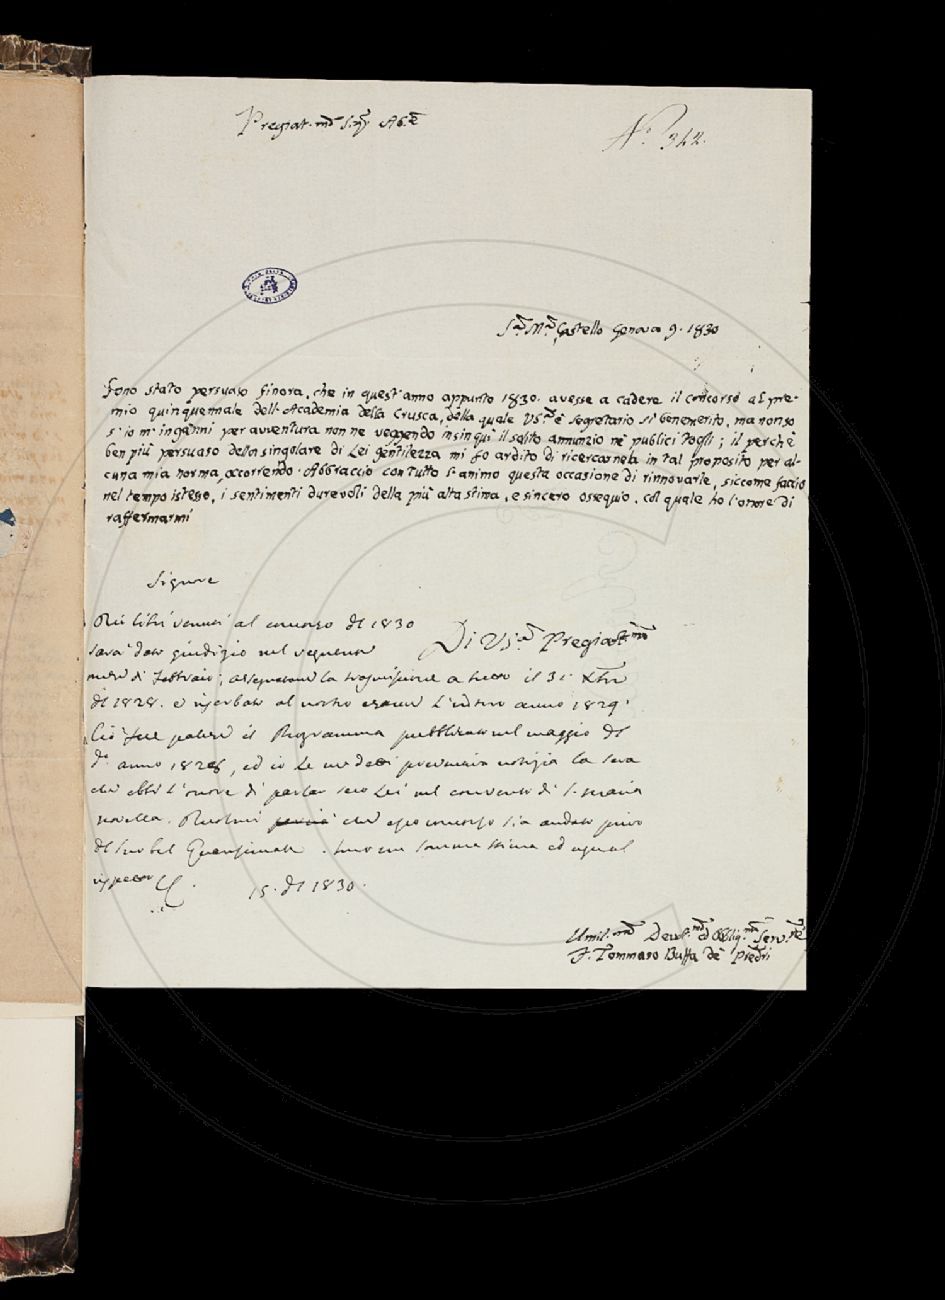 Pregiat.mo Sig.r Ab.e
N.o 342.
S.a M.a Castello Genova 9. 1830
Sono stato persuaso finora, che in quest'anno appunto 1830. avesse a cadere il concorso al pre-
mio quinquennale dell'Academia della Crusca, della quale VS.a è segretario sì benemerito, ma non so
s'io m'inganni per avventura non ne veggendo insin quì il solito annunzio ne' publici fogli; il perchè
ben più persuaso della singolare di Lei gentilezza mi fo ardito di ricercarnela in tal proposito per al-
cuna mia norma, occorrendo. Abbraccio con tutto l'animo questa occasione di rinnovarle, siccome faccio
nel tempo istesso, i sentimenti durevoli della più alta stima, e sincero ossequio, col quale ho l'onore di
raffermarmi
Signore
Dei libri venuti al concorso del 1830
sarà dato giudizio nel seguente
Di VS.a Pregiat.ma
mese di Febbraio; assegnatone la trasmissione a tutto il 31 Xbre
del 1828. e riserbato al nostro esame l'intero anno 1829.
Ciò fece palese il Programma pubblicato nel maggio del
d.o anno 1828, ed io Le ne detti preventiva notizia la sera
che ebbi l'onore di parlar seco Lei nel convento di S. Maria
novella. che esso concorso sia andato privo
del suo bel Quaresimale. Sono con somma stima ed egual
rispetto
15. del 1830.
Umil.mo Devot.mo ed Obblig.mo Serv.re
F. Tommaso Buffa de' Pred.ri